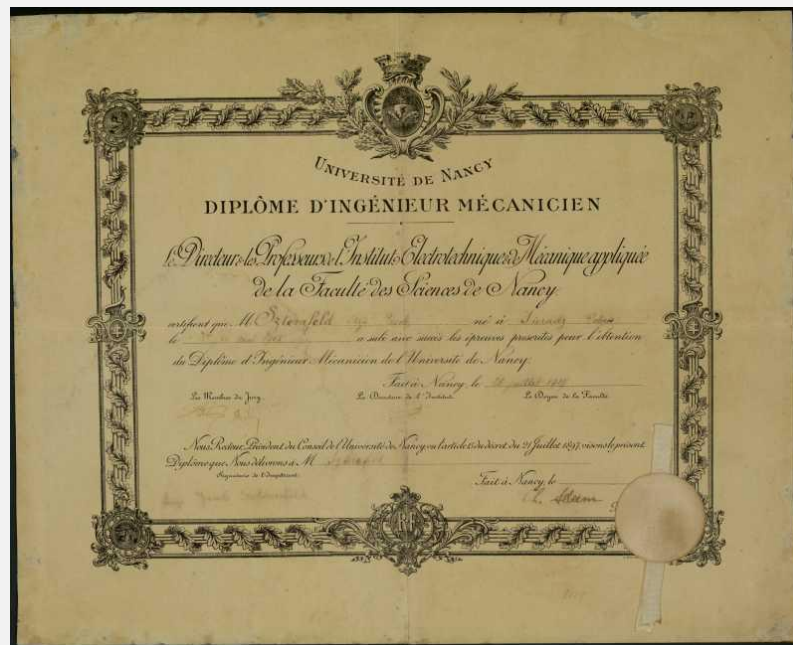 UNIVERSITÉ DE NANCY
DIPLÔME D'INGÉNIEUR MÉCANICIEN
Le Directeur & les Professeurs de l'Institut Electrotechnique & de Mécanique appliquée
de la Faculté des Sciences de Nancy
certifient que M. Szternfeld né à Sieradz
le a subi avec succès les épreuves prescrites pour l'obtention
du Diplôme d'Ingénieur Mécanicien de l'Université de Nancy.
Fait à Nancy, le juillet
Les Membres du Jury, Le Directeur de l'Institut, Le Doyen de la Faculté,
Nous, Recteur, Président du Conseil de l'Université de Nancy, vu l'article 15 du décret du 21 Juillet 1897, visons le présent
Diplôme que Nous délivrons à M
Signature de l'Impétrant,
Fait à Nancy, le
RF